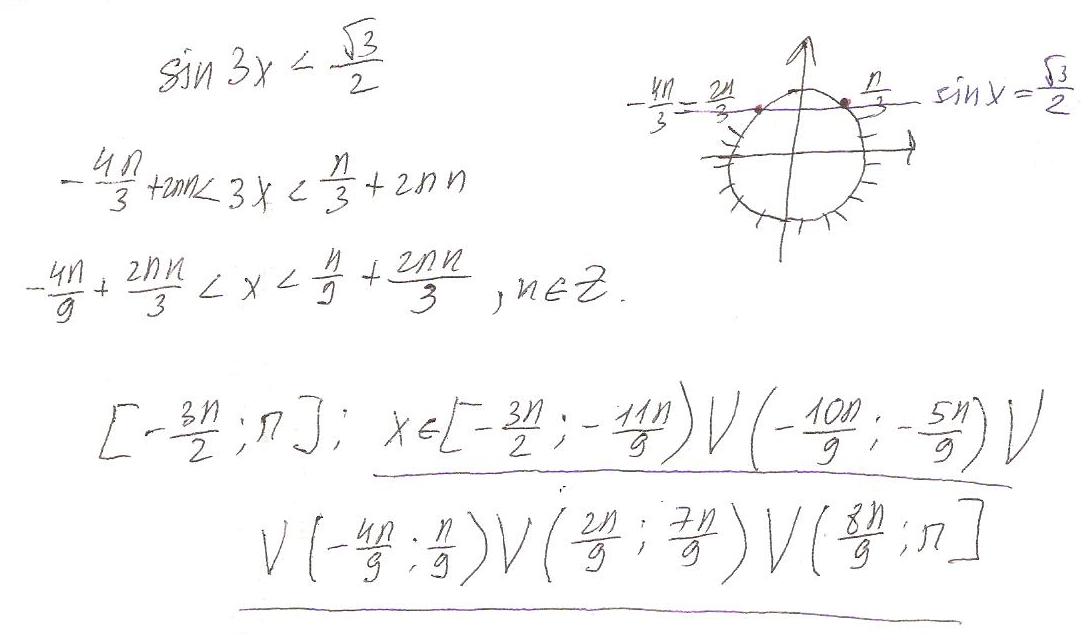 sin 3x < √3/2
-4π/3 = 2π/3 π/3 sin x = √3/2
-4π/3 + 2πn < 3x < π/3 + 2πn
-4π/9 + 2πn/3 < x < π/9 + 2πn/3 , n ∈ Z.
[-3π/2 ; π] ; x ∈ [-3π/2 ; -11π/9) ∪ (-10π/9 ; -5π/9) ∪
∪ (-4π/9 ; π/9) ∪ (2π/9 ; 7π/9) ∪ (8π/9 ; π]